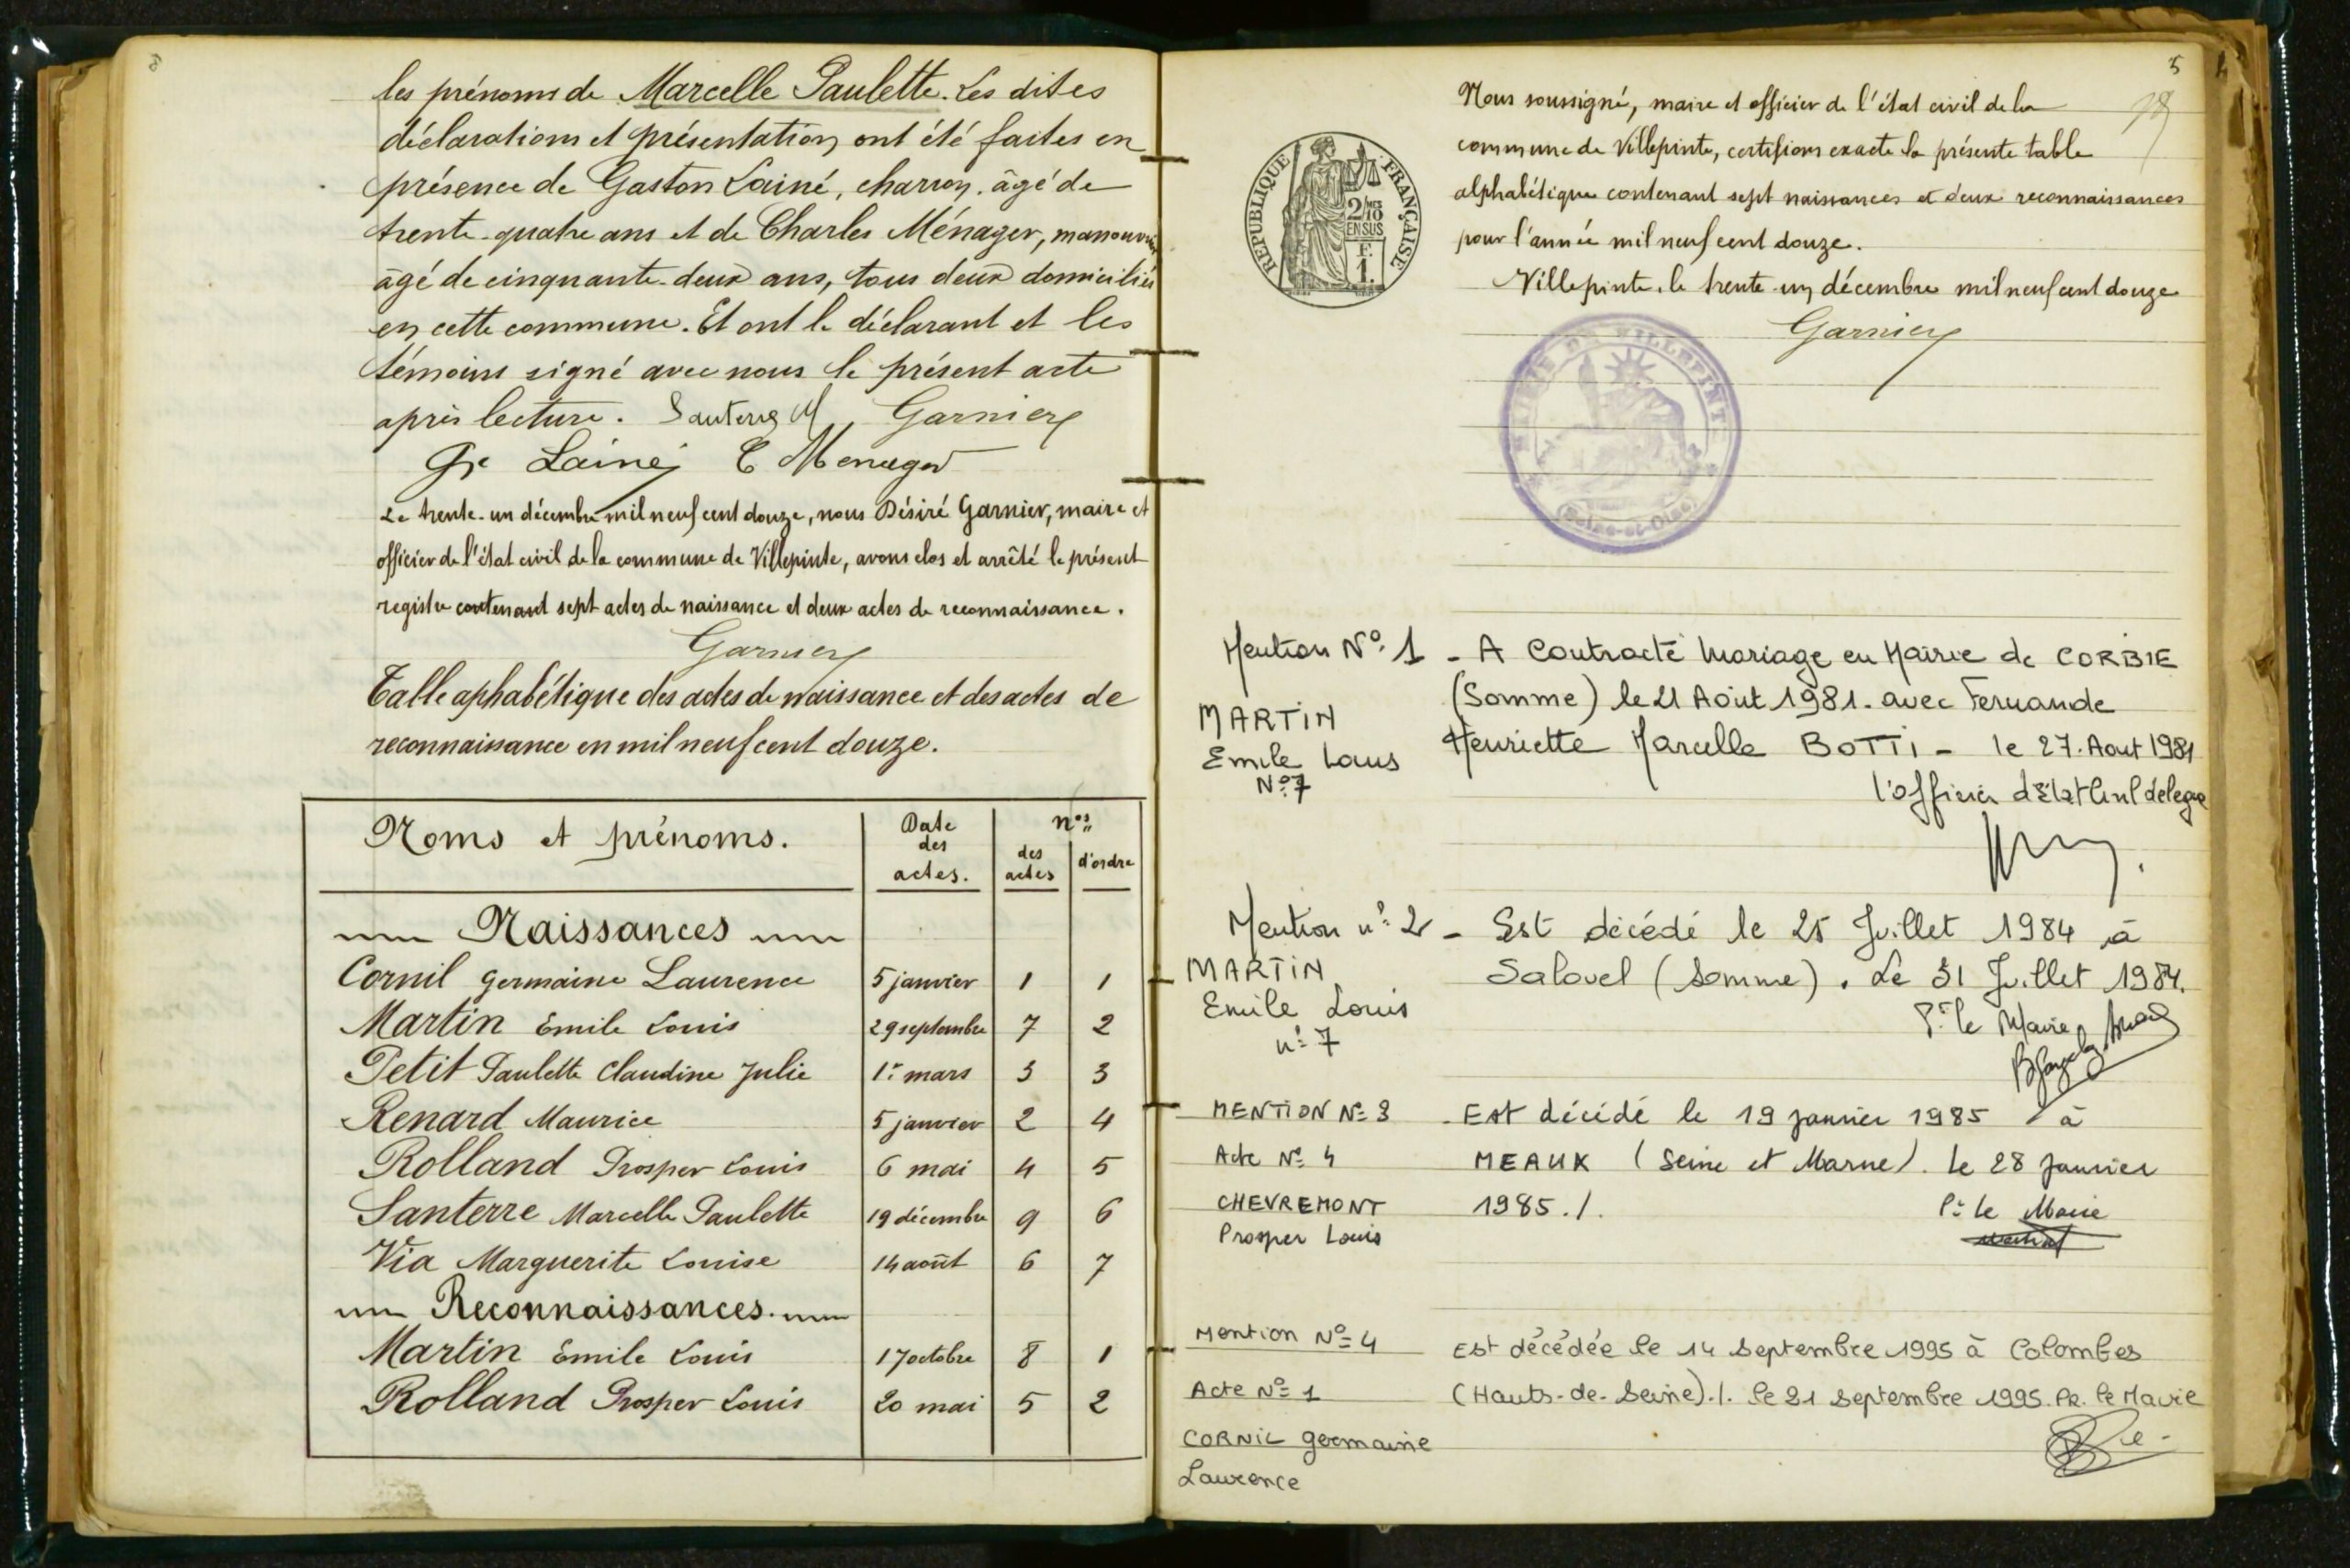 les prénoms de Marcelle Paulette. Les dites
déclarations et présentation ont été faites en
présence de Gaston Lainé, charron, âgé de
trente-quatre ans et de Charles Ménager, manouvrier
âgé de cinquante-deux ans, tous deux domiciliés
en cette commune. Et ont le déclarant et les
témoins signé avec nous le présent acte
après lecture. Santerre M Garnier
Lainé C Menager
Le trente-un décembre mil neuf cent douze, nous Désiré Garnier, maire et
officier de l'état civil de la commune de Villepinte, avons clos et arrêté le présent
registre contenant sept actes de naissance et deux actes de reconnaissance.
Garnier
Table aphabétique des actes de naissance et des actes de
reconnaissance en mil neuf cent douze.
Noms et prénoms. Date des actes. nos des actes d'ordre
Naissances
Cornil Germaine Laurence 5 janvier 1 1
Martin Emile Louis 29 septembre 7 2
Petit Paulette Claudine Julie 1er mars 3 3
Renard Maurice 5 janvier 2 4
Rolland Prosper Louis 6 mai 4 5
Santerre Marcelle Paulette 19 décembre 9 6
Via Marguerite Louise 14 août 6 7
Reconnaissances.
Martin Emile Louis 17 octobre 8 1
Rolland Prosper Louis 20 mai 5 2
5
Nous soussigné, maire et officier de l'état civil de la
commune de Villepinte, certifions exacte la présente table
alphabétique contenant sept naissances et deux reconnaissances
pour l'année mil neuf cent douze.
Villepinte, le trente-un décembre mil neuf cent douze
Garnier
REPUBLIQUE FRANÇAISE
2/10 EN SUS
F. 1.
MAIRIE DE VILLEPINTE
(Seine-et-Oise)
Mention N° 1 - A Contracté Mariage en Mairie de CORBIE
(Somme) le 21 Août 1981. avec Fernande
MARTIN
Henriette Marcelle BOTTI - le 27. Aout 1981
Emile Louis
N° 7
l'officier d'Etat Civil délégué
Mention n° 2 - Est décédé le 25 Juillet 1984 à
MARTIN
Salouel (Somme). Le 31 Juillet 1984.
Emile Louis
Pr le Maire
n° 7
MENTION N° 3 Est décédé le 19 janvier 1985 à
Acte N° 4 MEAUX (Seine et Marne). le 28 janvier
CHEVREMONT 1985./. Pr le Maire
Prosper Louis
Mention N° 4 Est décédée le 14 septembre 1995 à Colombes
Acte N° 1 (Hauts-de-Seine)./. le 21 septembre 1995. Pr. le Maire
CORNIL Germaine
Laurence